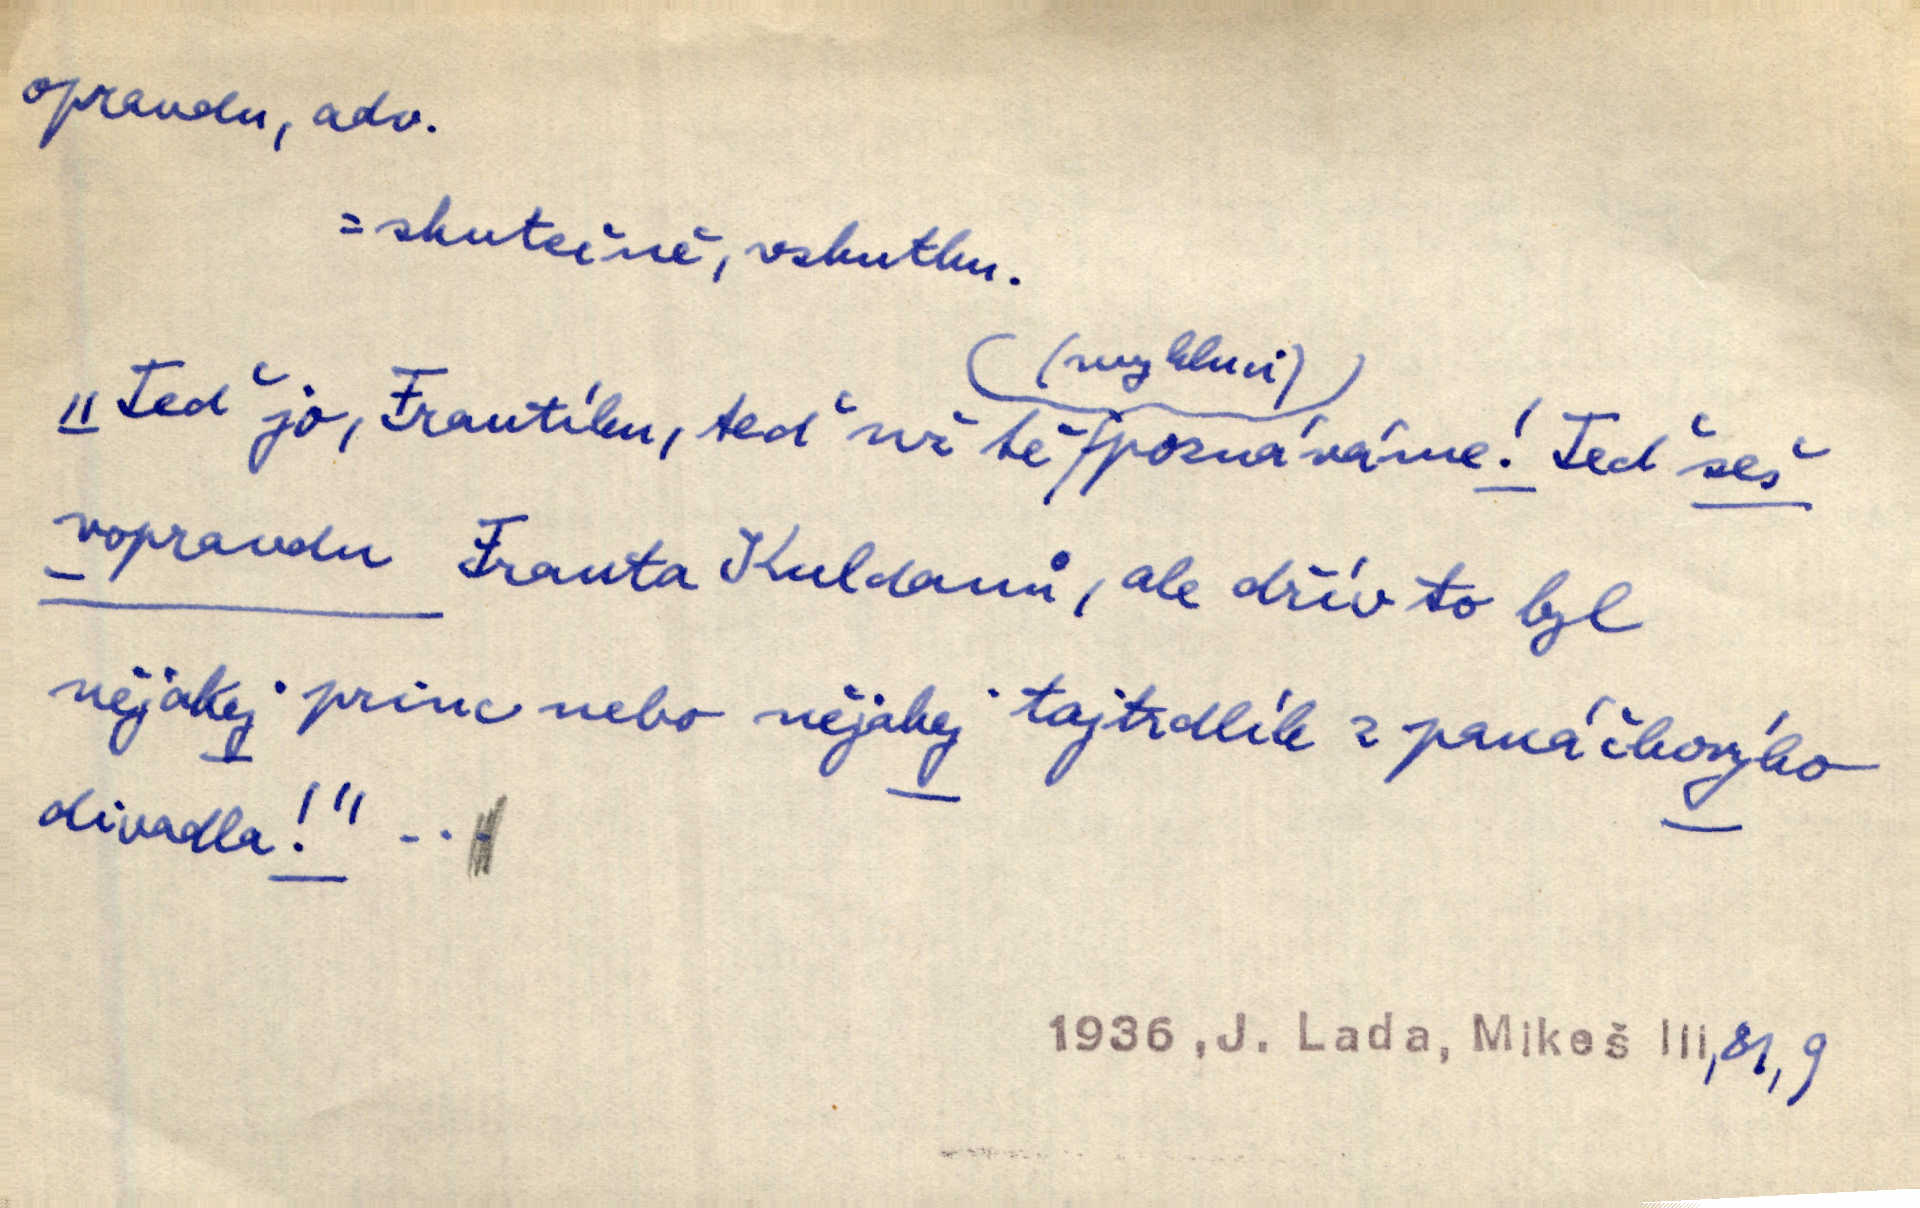 opravdu, adv.
= skutečně, vskutku.
(my kluci)
"Teď jo, Frantíku, teď už tě poznáváme! Teď seš
vopravdu Franta Kuldanů, ale dřív to byl
nějakej princ nebo nějakej tajtrdlík z panáčkovýho
divadla!" ...
1936, J. Lada, Mikeš III, 81, 9